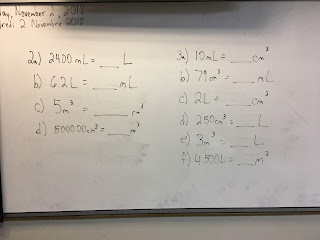 day, November 2, 2018
dredi 2 Novembre 2018
2a) 2400 mL = ___ L
b) 6.2L = ___ mL
c) 5m³ = ___ cm³
d) 500000cm³ = ___ m³
3a) 10mL = ___ cm³
b) 79m³ = ___ mL
c) 2L = ___ cm³
d) 250cm³ = ___ L
e) 3m³ = ___ L
f) 4500L = ___ m³